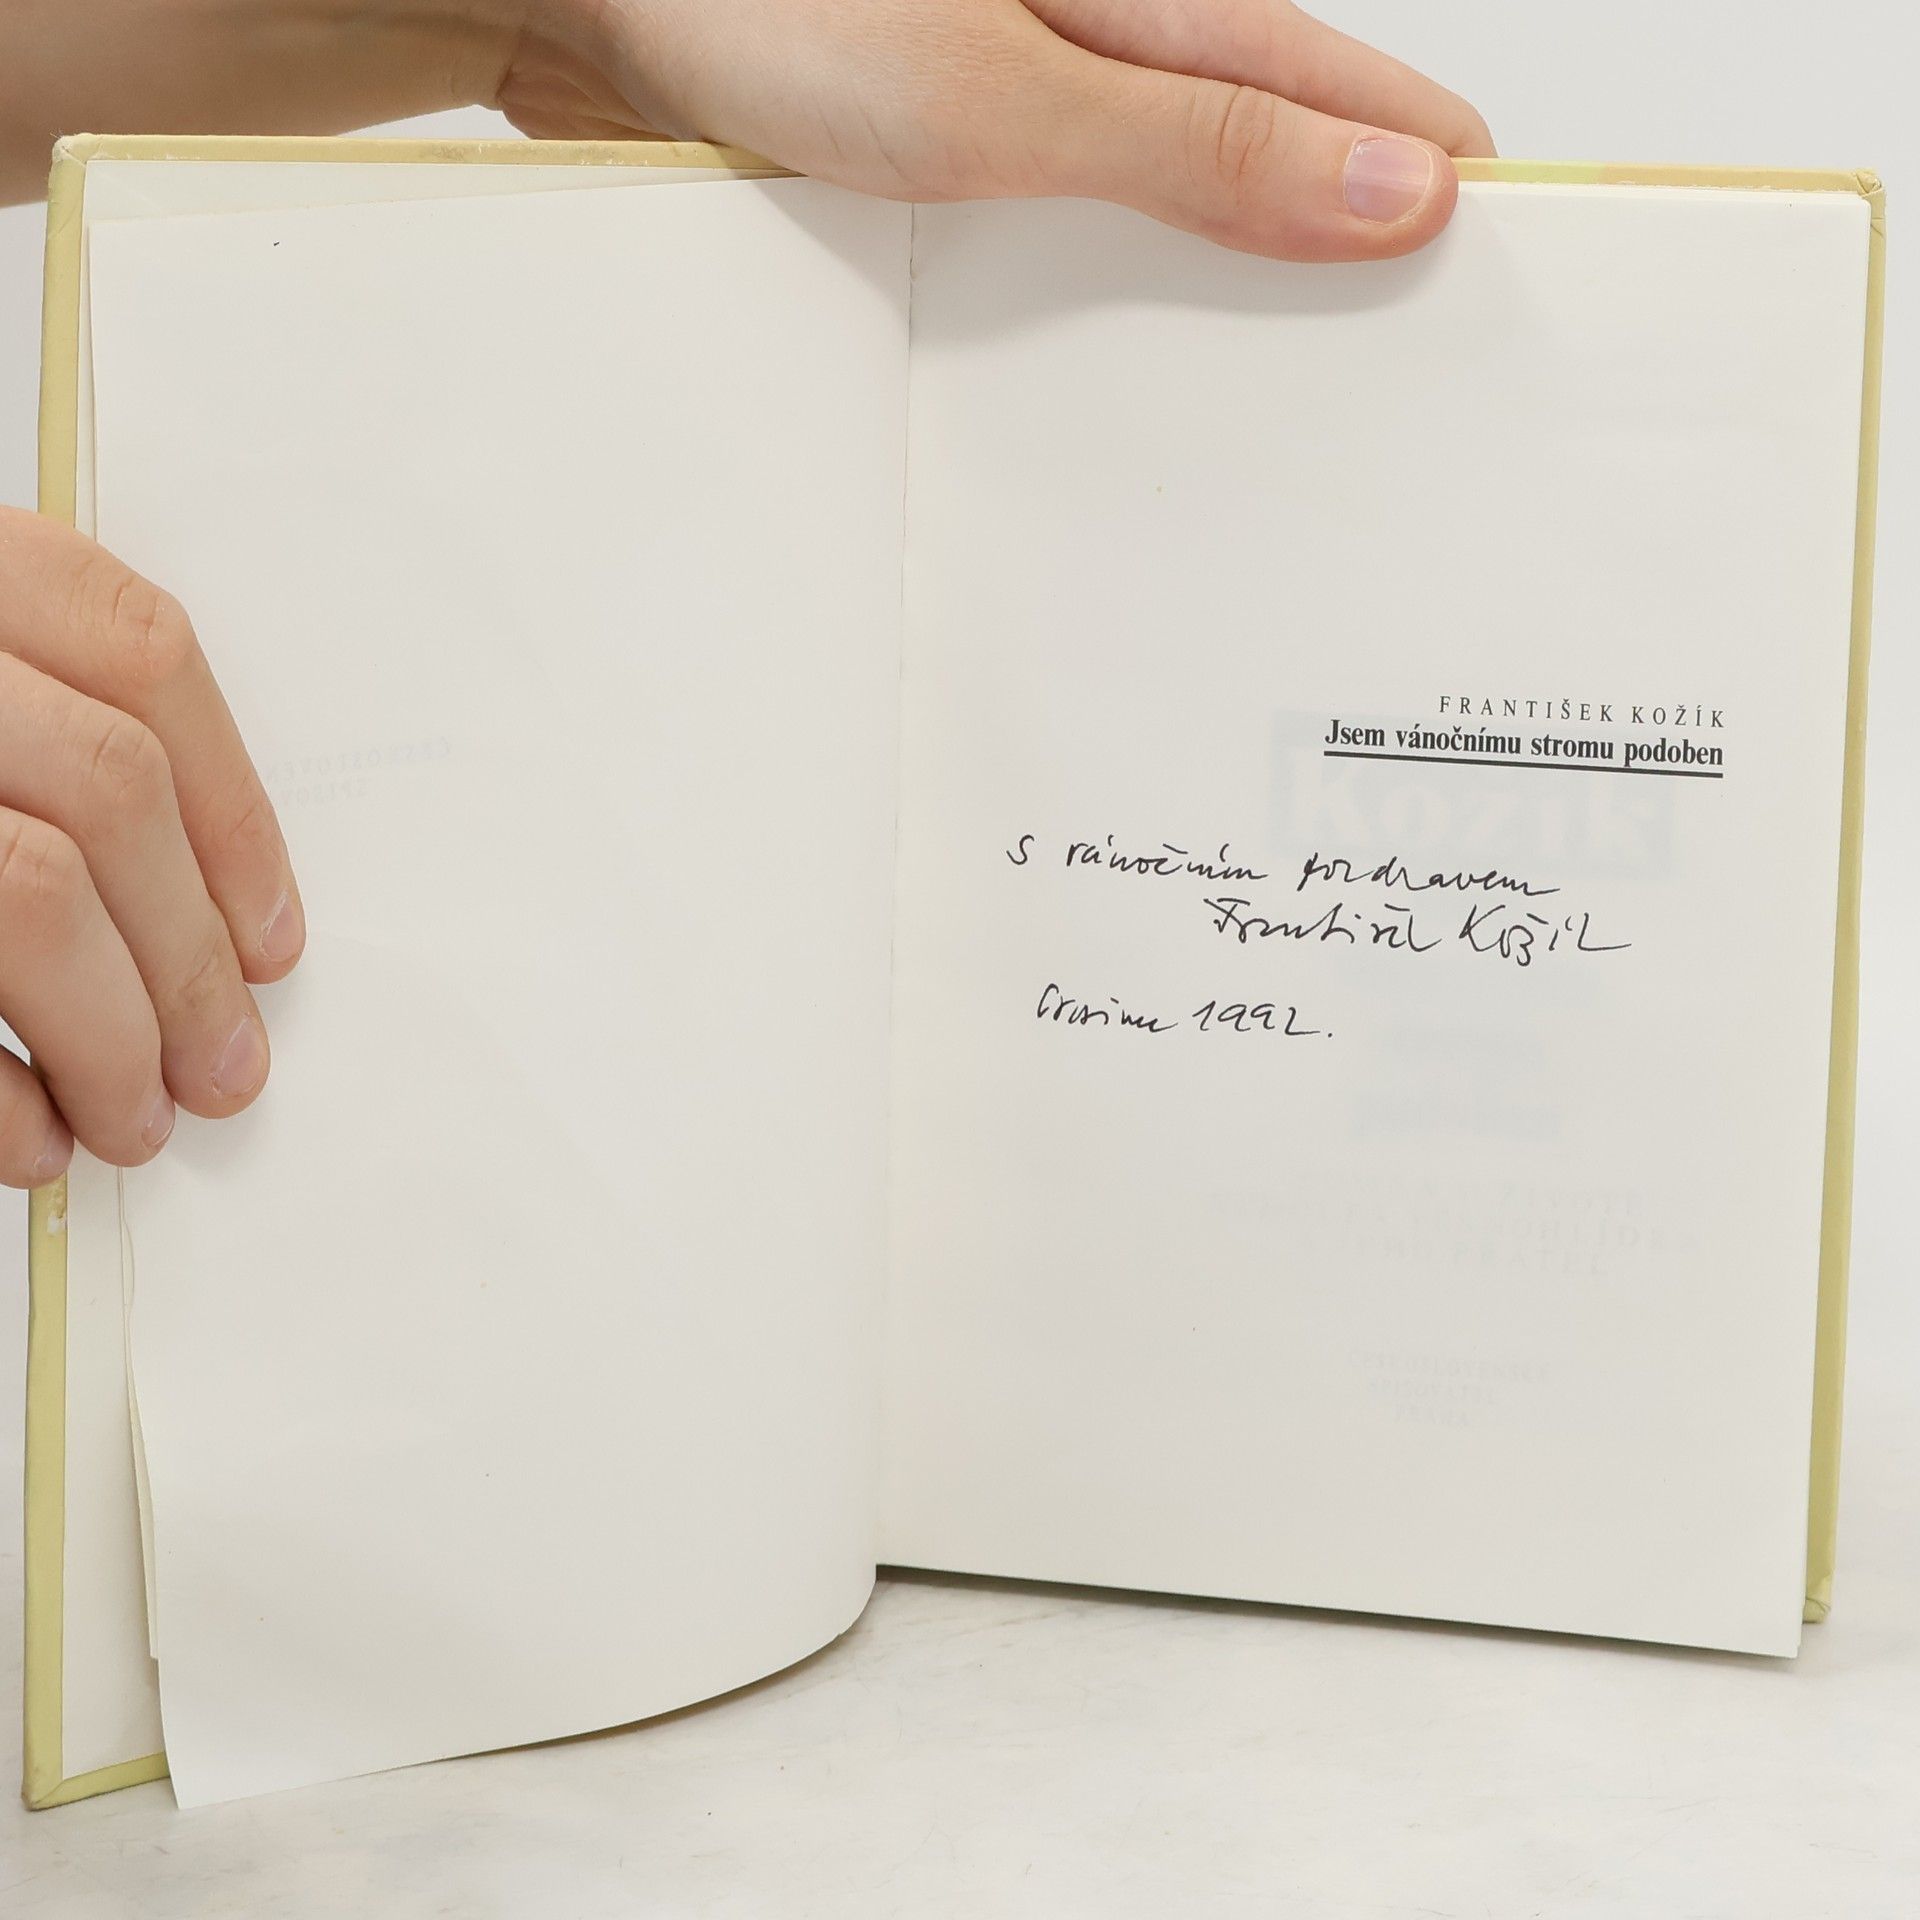 FRANTIŠEK KOŽÍK
Jsem vánočnímu stromu podoben
s vánočním pozdravem
František Kožík
1992.